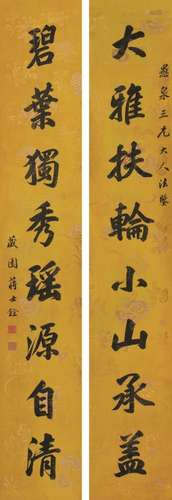 愚泉三兄大人法鑒
大雅扶輪小山承盖
碧葉獨秀瑶源自清
藏園蔣士銓